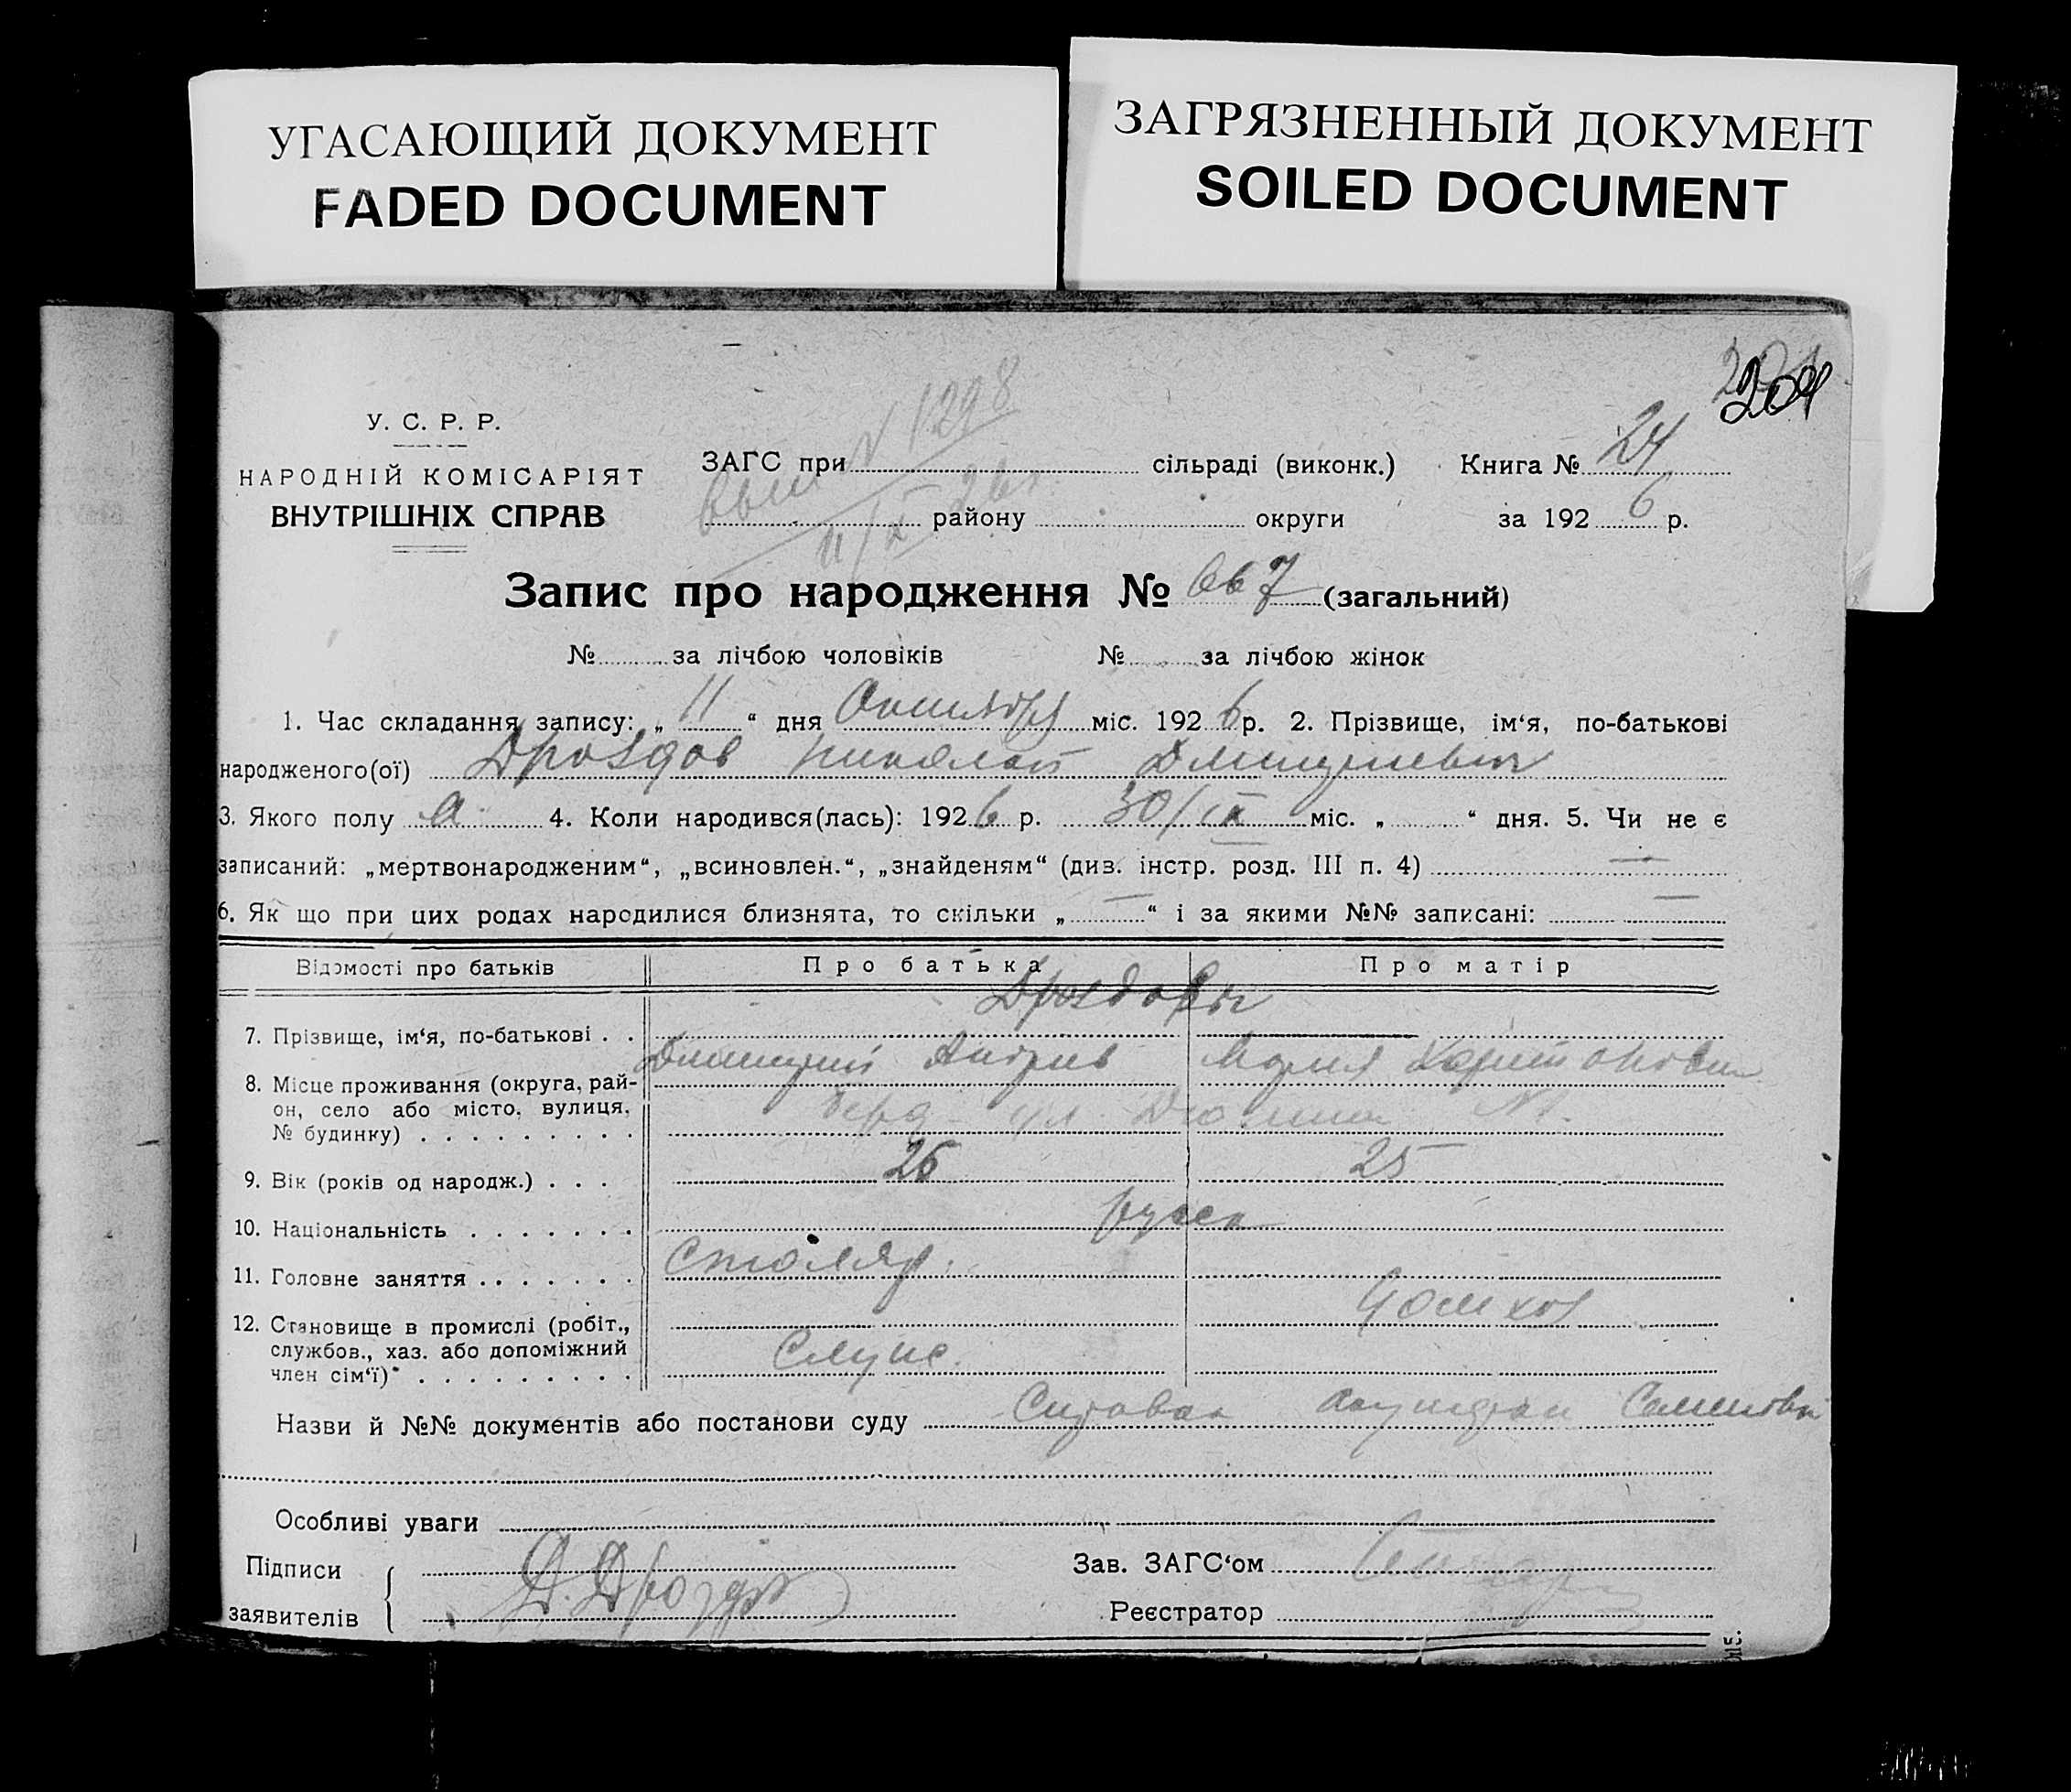 УГАСАЮЩИЙ ДОКУМЕНТ
FADED DOCUMENT
ЗАГРЯЗНЕННЫЙ ДОКУМЕНТ
SOILED DOCUMENT
204
У. С. Р. Р.
НАРОДНІЙ КОМІСАРІЯТ
ВНУТРІШНІХ СПРАВ
N 1298
ЗАГС при сільраді (виконк.) Книга № 24
району округи за 192 6 р.
Запис про народження № 667 (загальний)
№ за лічбою чоловіків № за лічбою жінок
1. Час складання запису: „ 11 “ дня Октября міс. 192 6 р. 2. Прізвище, ім‘я, по-батькові
народженого(ої) Дроздов Николай Дмитриевич
3. Якого полу 4. Коли народився(лась): 192 6 р. 30/IX міс. „ “ дня. 5. Чи не є
записаний: „мертвонародженим“, „всиновлен.“, „знайденям“ (див. інстр. розд. III п. 4) —
6. Як що при цих родах народилися близнята, то скільки „ — “ і за якими №№ записані: —
Відомості про батьків Про батька Про матір
Дроздовы
7. Прізвище, ім‘я, по-батькові . .
Дмитрий Андрев Мария Харитоновна
8. Місце проживання (округа, рай-
он, село або місто, вулиця,
№ будинку) . . . . . . . . .
9. Вік (років од народж.) . . . 26 25
10. Національність . . . . . . . русск
11. Головне заняття . . . . . . . столяр.
домхоз
12. Становище в промислі (робіт.,
службов., хаз. або допоміжний
член сім‘ї)* . . . . . . . . .
Служ.
Назви й №№ документів або постанови суду Справка
Особливі уваги
Підписи
заявителів
Д. Дроздов
Зав. ЗАГС‘ом
Реєстратор